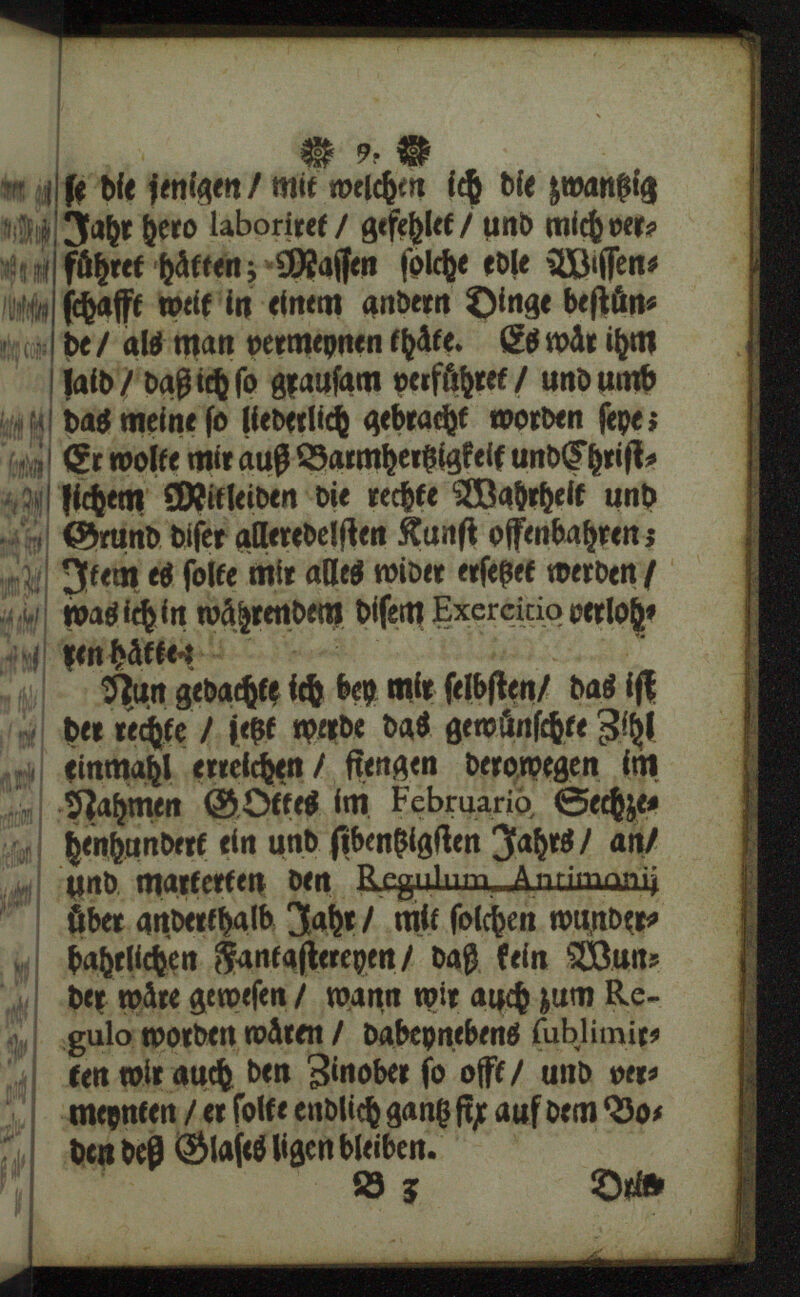 9.
ſe die jenigen / mit welchen ich die zwantzig
Jahr hero laboriret / gefehlet / und mich ver⸗
fuͤhret haͤtten; Maſſen ſolche edle Wiſſen⸗
ſchafft weit in einem andern Dinge beſtuͤn⸗
de / als man vermeynen thaͤte. Es waͤr ihm
laid / daß ich ſo grauſam verfuͤhret / und umb
das meine ſo liederlich gebracht worden ſeye;
Er wolte mir auß Barmhertzigkeit und Chriſt⸗
lichem Mitleiden die rechte Wahrheit und
Grund diſer alleredelſten Kunſt offenbahren;
Item es ſolte mir alles wider erſetzet werden /
was ich in waͤhrendem diſem Exercitio verloh⸗
ren haͤtte.
Nun gedachte ich bey mir ſelbſten / das iſt
der rechte / jetzt werde das gewuͤnſchte Zihl
einmahl erreichen / fiengen derowegen im
Nahmen GOttes im Februario Sechze⸗
henhundert ein und ſibentzigſten Jahrs / an /
und marterten den Regulum Antimonij
uͤber anderthalb Jahr / mit ſolchen wunder⸗
bahrlichen Fantaſtereyen / daß kein Wun⸗
der waͤre geweſen / wann wir auch zum Re-
gulo worden waͤren / dabeynebens ſublimir⸗
ten wir auch den Zinober ſo offt / und ver⸗
meynten / er ſolte endlich gantz fix auf dem Bo⸗
den deß Glaſes ligen bleiben.
B 3 Drit⸗